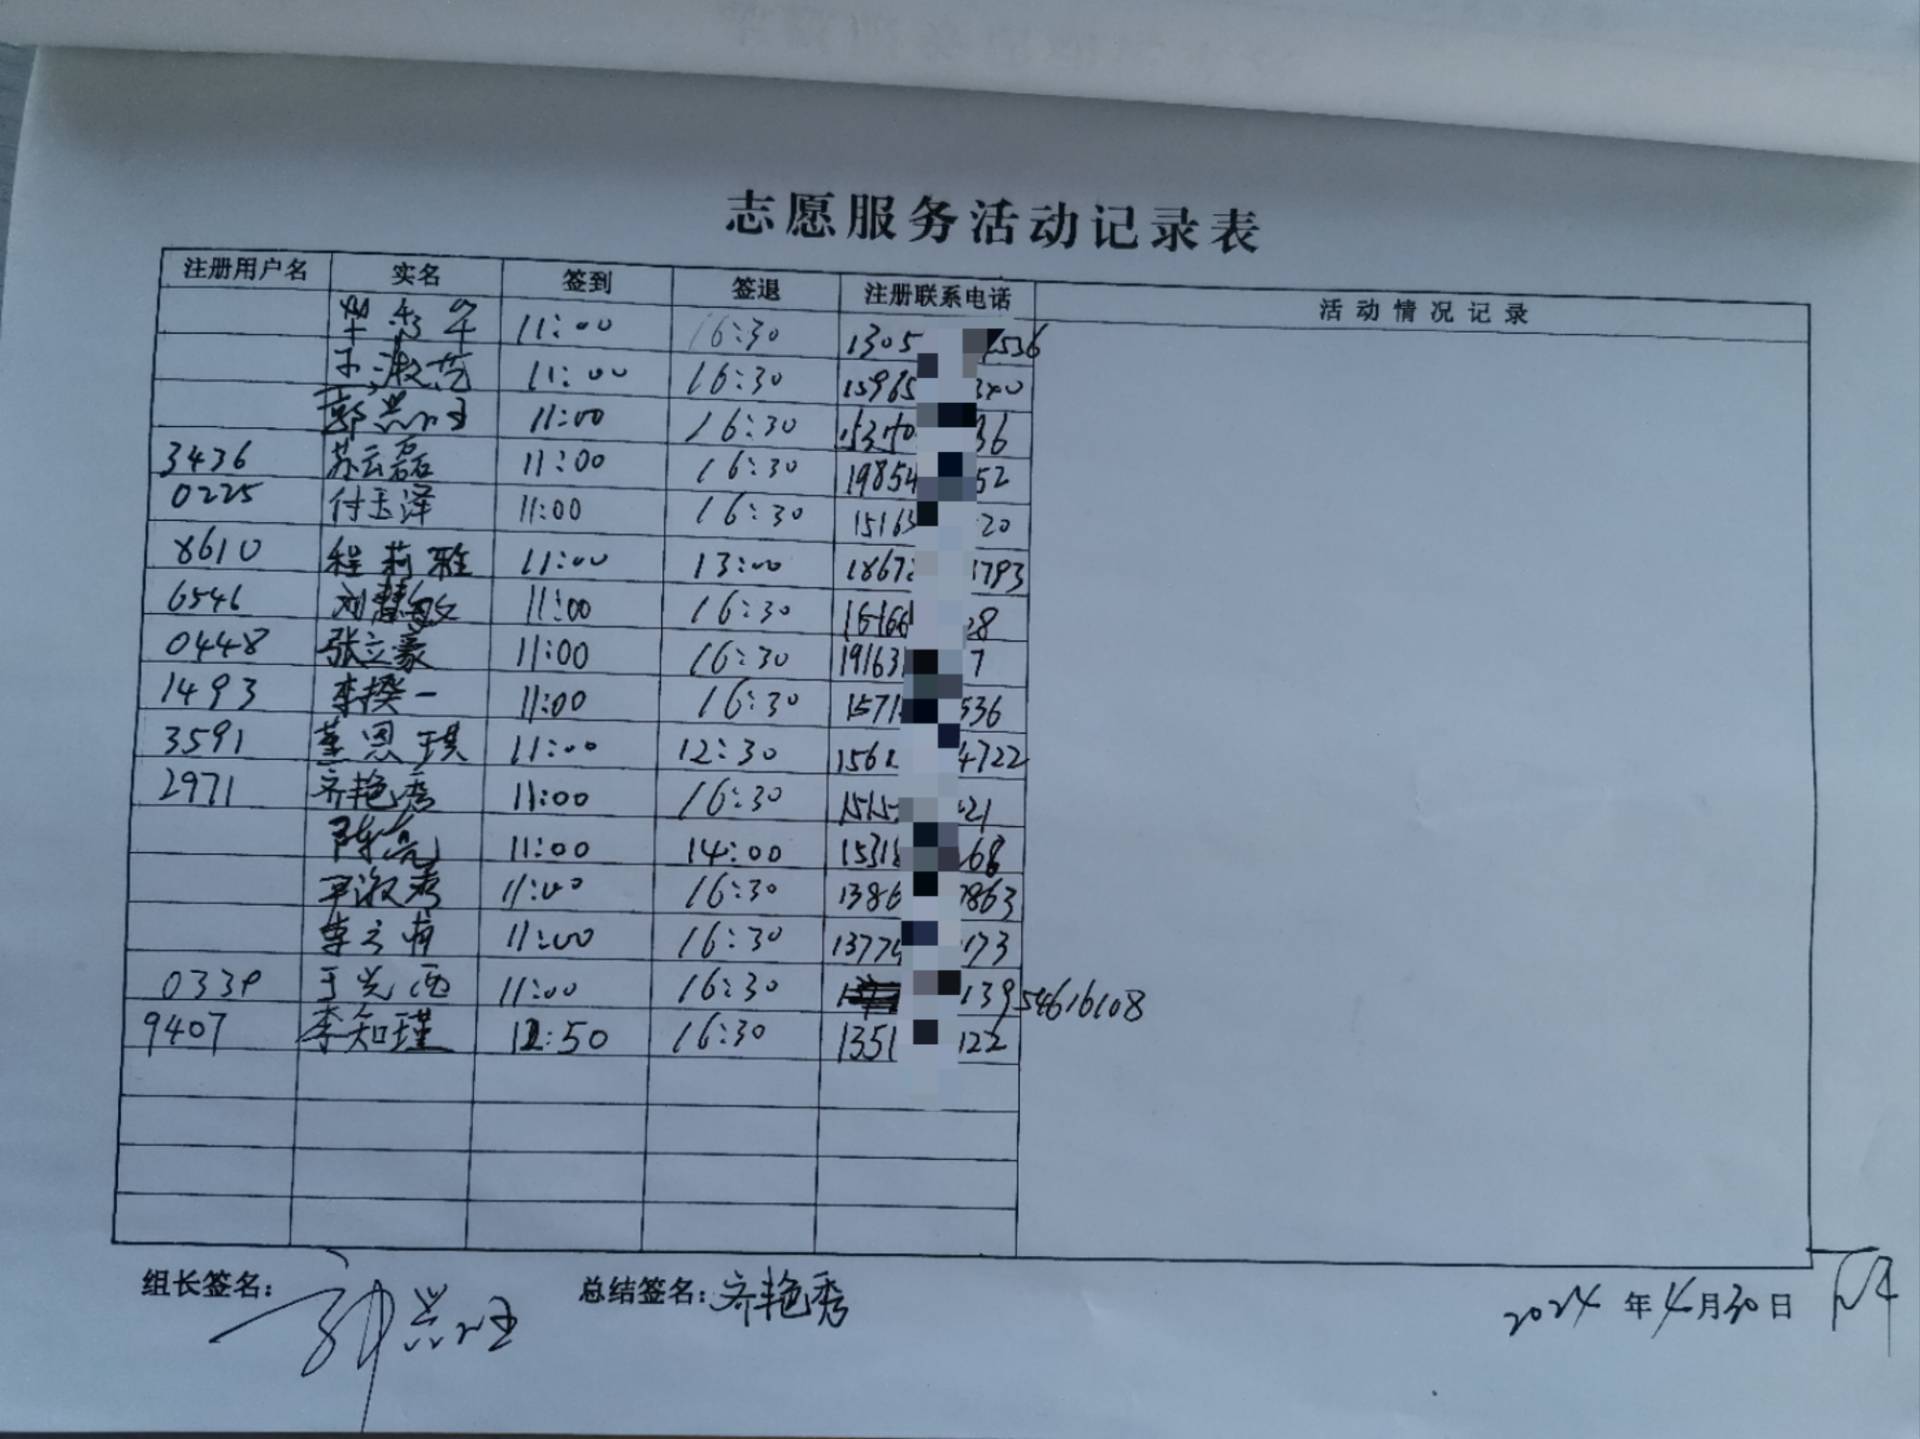 志愿服务活动记录表
注册用户名 实名 签到 签退 注册联系电话 活动情况记录
11:00 16:30 1305 1536
11:00 16:30 15965 340
11:00 16:30 1537 36
3436 苏云磊 11:00 16:30 19854 52
0225 付玉泽 11:00 16:30 15163 20
8610 程莉雅 11:00 13:00 1867 1793
6546 刘慧敏 11:00 16:30 15166 28
0448 张立豪 11:00 16:30 19163 7
1493 李揆一 11:00 16:30 1571 536
3591 董恩琪 11:00 12:30 156 4722
2971 齐艳秀 11:00 16:30 1515 21
陈亮 11:00 14:00 1531 68
淑秀 11:00 16:30 1386 7863
李云 11:00 16:30 1377 173
033 于 西 11:00 16:30 13954616108
9407 李知瑾 12:50 16:30 1351 122
组长签名: 总结签名:齐艳秀 2024年4月30日